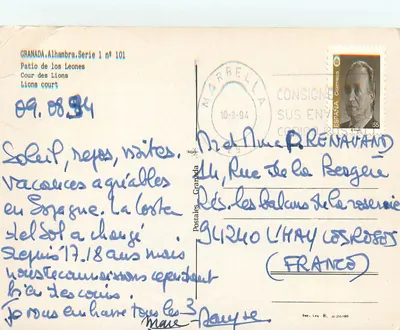 GRANADA.Alhambra.Serie 1 nº 101
Patio de los Leones
Cour des Lions
Lions court
09.08.94
Soleil, repos, visites.
Vacances agréables
en Espagne. La Costa
del Sol a changé
depuis 17.18 ans mais
nous reconnaissons cependant
bien des coins.
Je vous embrasse tous les 3
MARBELLA
10-8-94
CONSIGNE
SUS ENV
ESPAÑA CORREOS
Mr et Mme P. RENAVAND
14, Rue de la Bergère
Rés. les balcons de la roseraie
94240 L'HAY LES ROSES
(FRANCE)
Postales